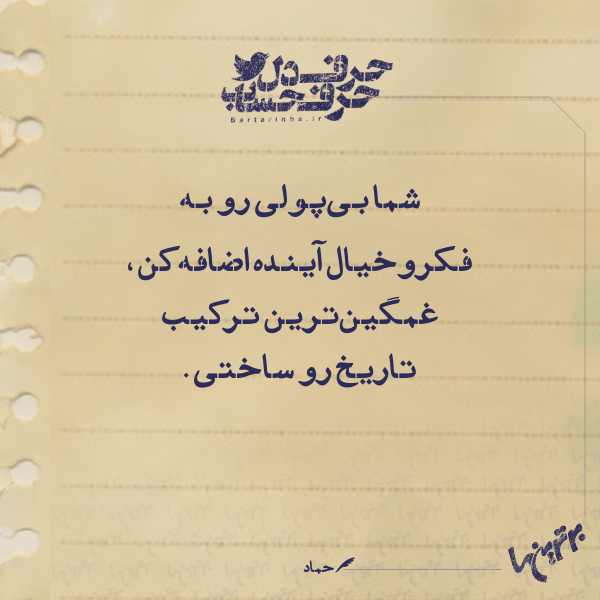 حرف دل
حرف حساب
Bartarinha.ir
شما بی‌پولی رو به
فکر و خیال آینده اضافه کن،
غمگین‌ترین ترکیب
تاریخ رو ساختی.
حماد
برترین‌ها